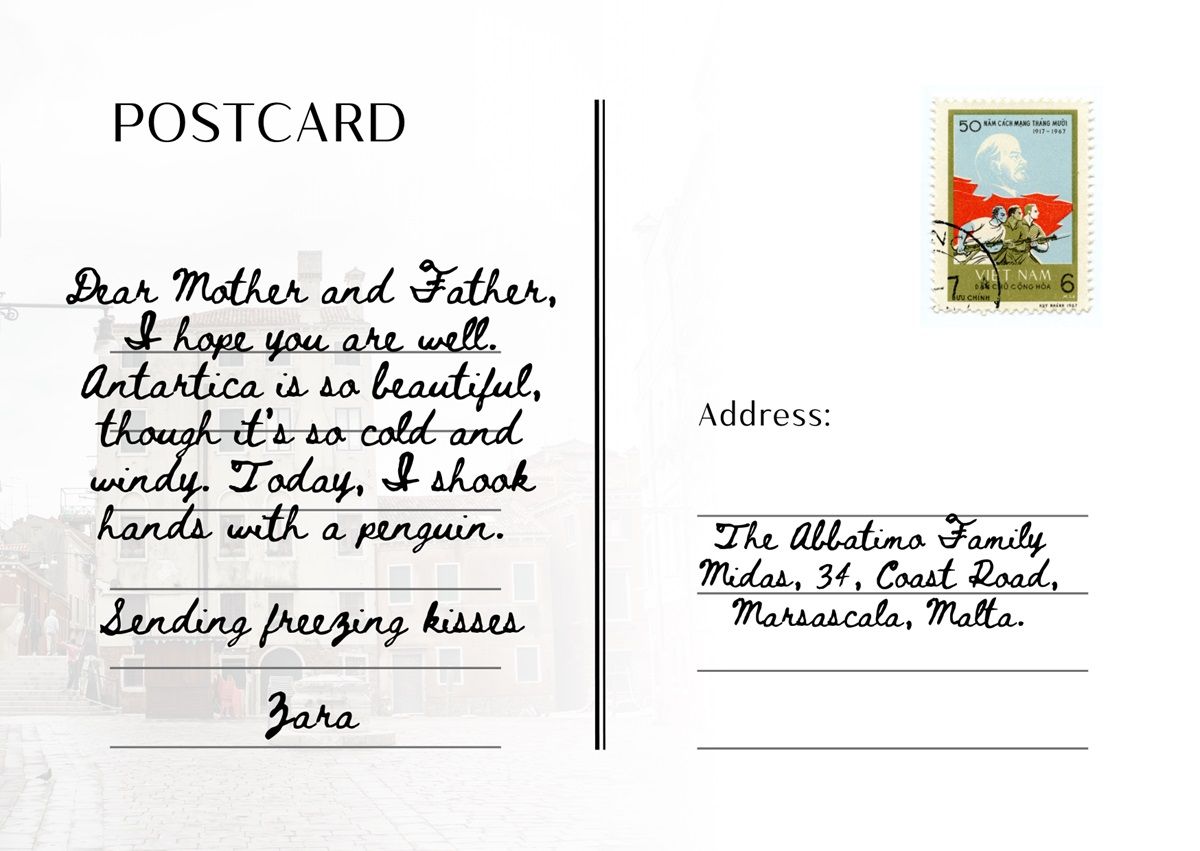 POSTCARD
Dear Mother and Father,
I hope you are well.
Antartica is so beautiful,
though it's so cold and
windy. Today, I shook
hands with a penguin.
Sending freezing kisses
Zara
50 NĂM CÁCH MẠNG THÁNG MƯỜI
1917-1967
VIỆT NAM
DÂN CHỦ CỘNG HÒA
6
BƯU CHÍNH
HUY KHÁNH 1967
Address:
The Abbatimo Family
Midas, 34, Coast Road,
Marsascala, Malta.